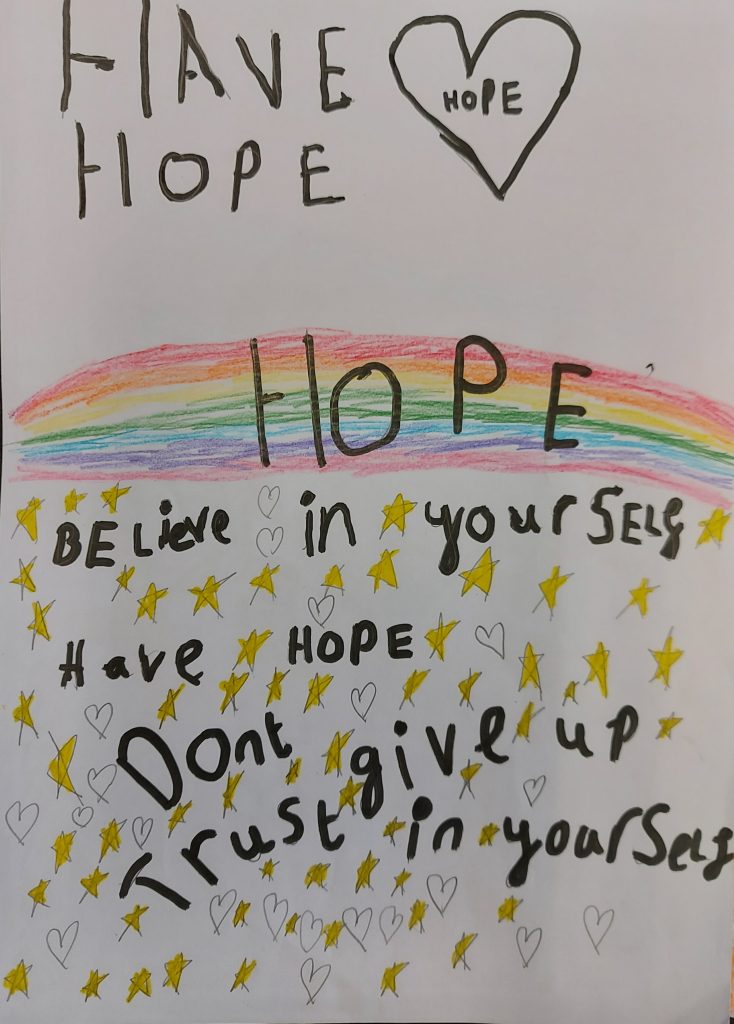 HAVE
HOPE
HOPE
HOPE
BELieve in yourSELf
Have HOPE
Dont give up
Trust in yourSelf